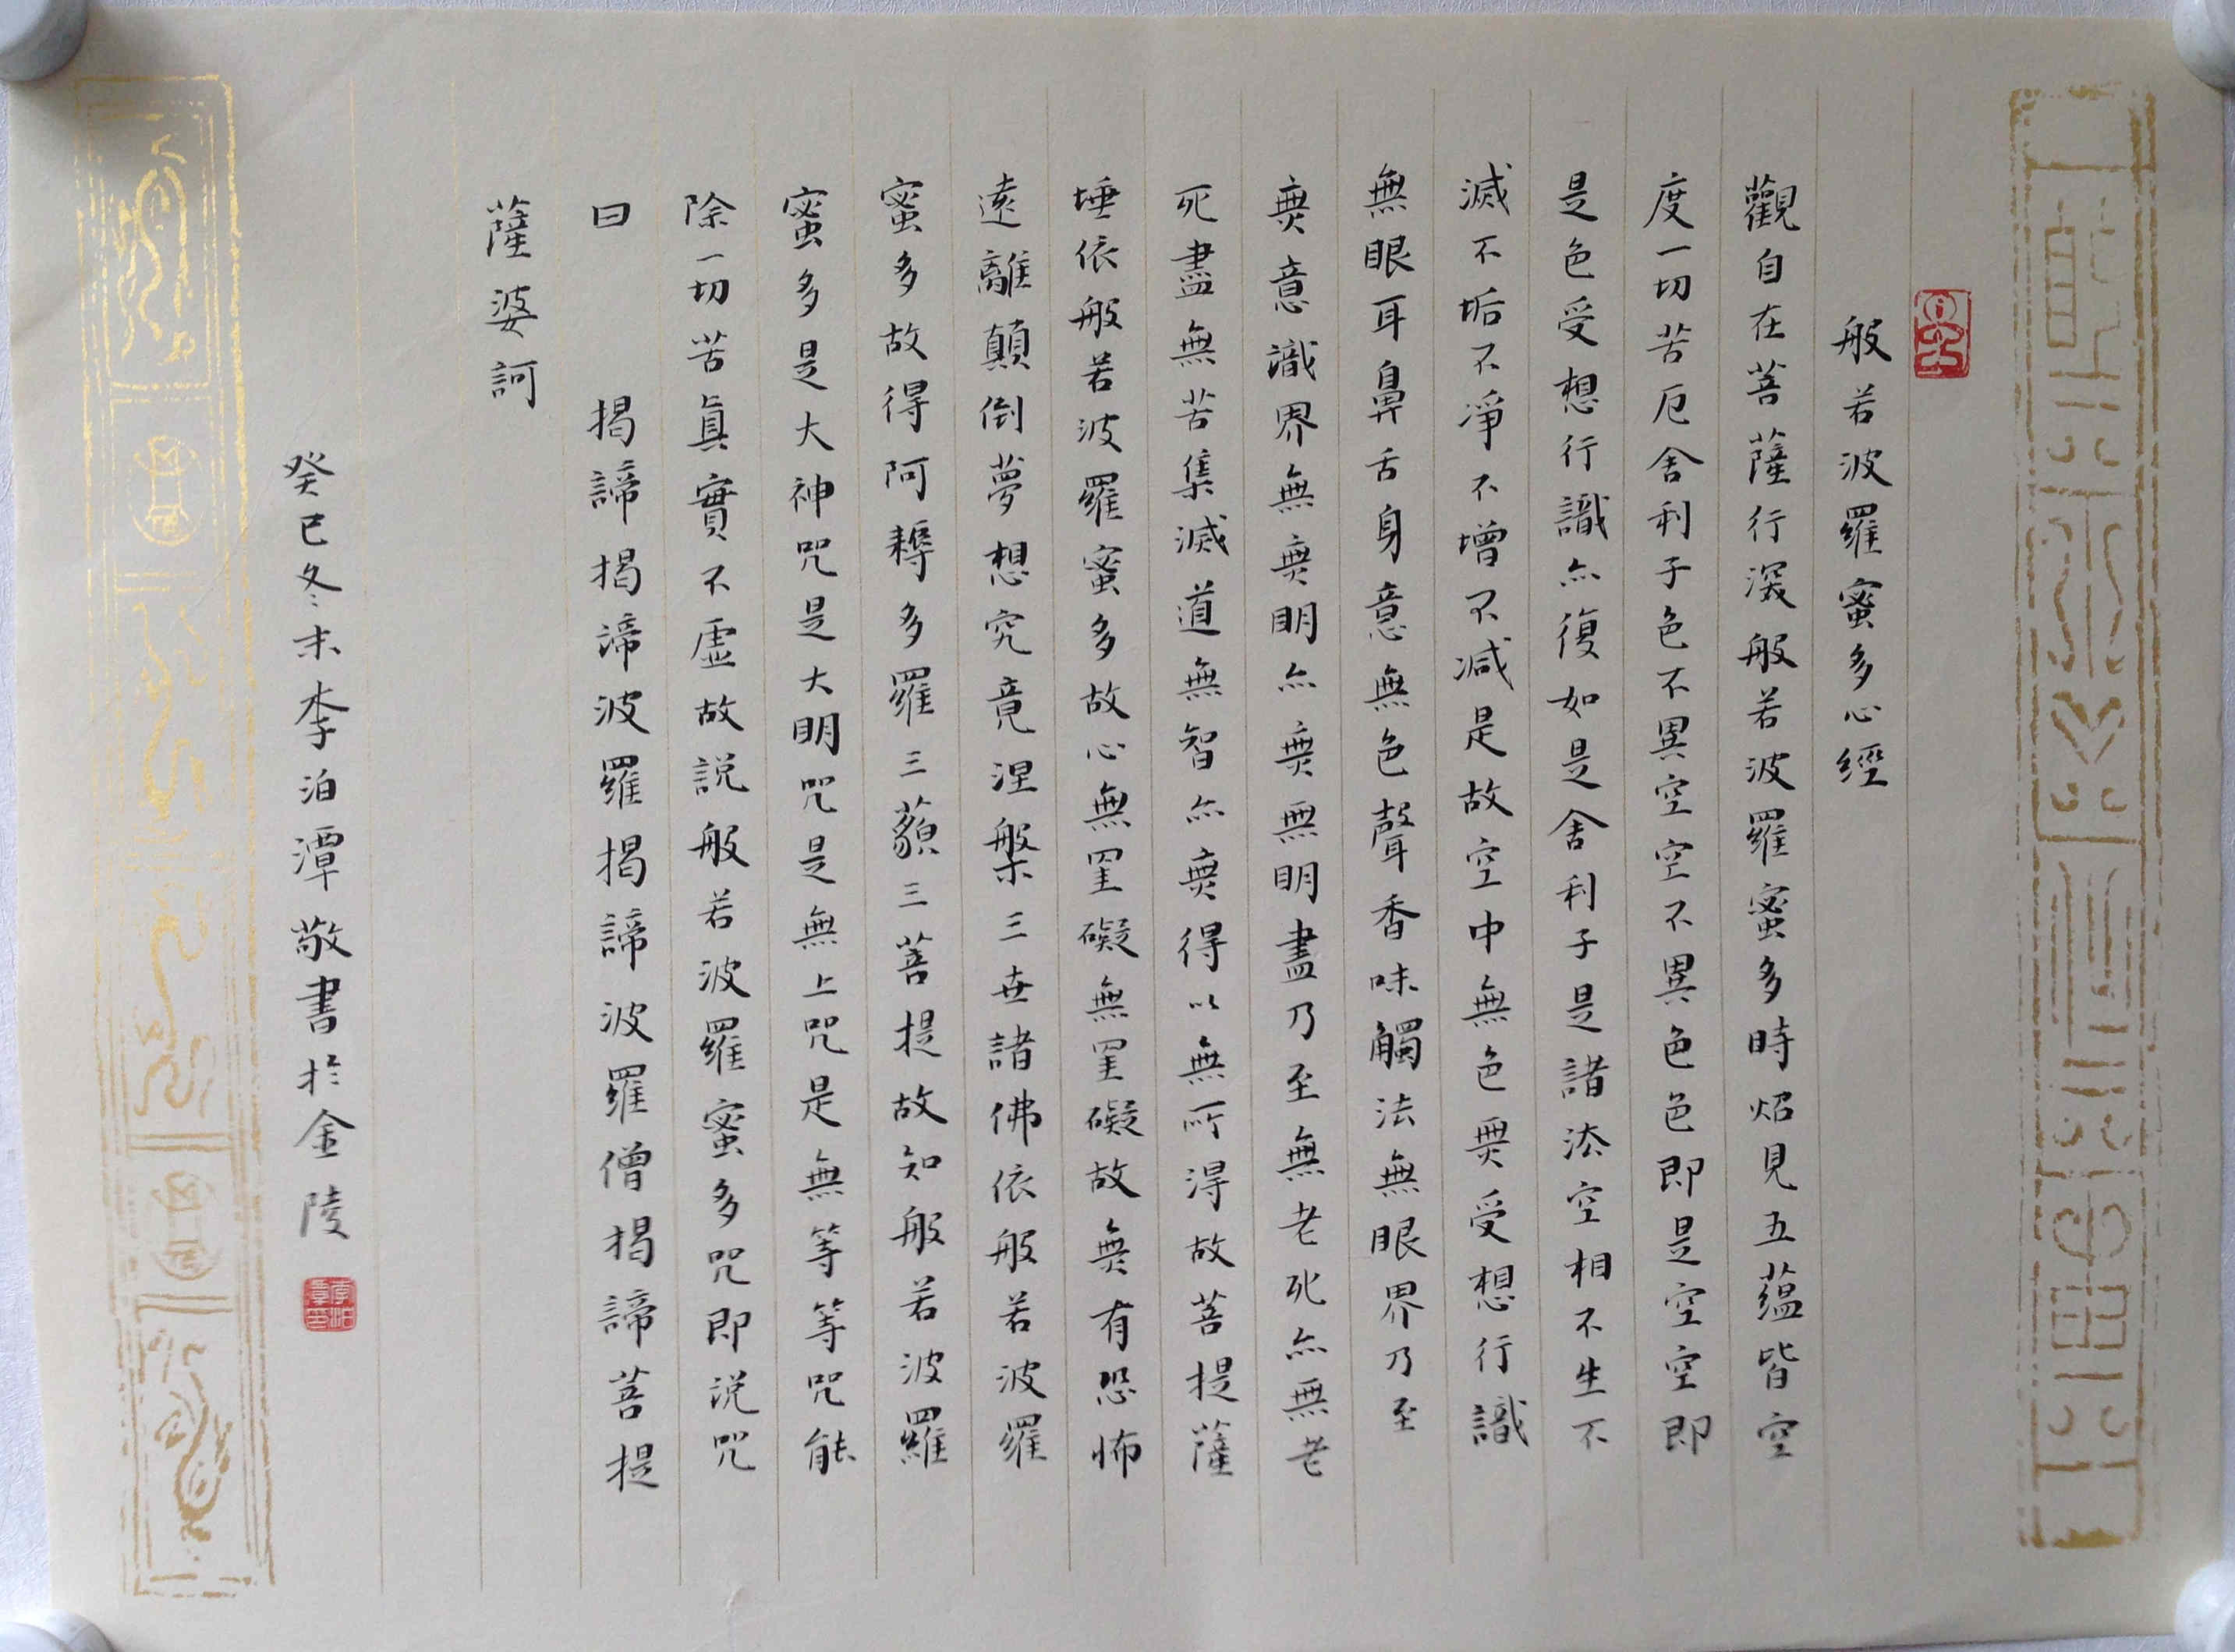 般若波羅蜜多心經
觀自在菩薩行深般若波羅蜜多時炤見五蘊皆空
度一切苦厄舍利子色不異空空不異色色即是空空即
是色受想行識亦復如是舍利子是諸法空相不生不
滅不垢不淨不增不減是故空中無色無受想行識
無眼耳鼻舌身意無色聲香味觸法無眼界乃至
無意識界無無明亦無無明盡乃至無老死亦無老
死盡無苦集滅道無智亦無得以無所得故菩提薩
埵依般若波羅蜜多故心無罣礙無罣礙故無有恐怖
遠離顛倒夢想究竟涅槃三世諸佛依般若波羅
蜜多故得阿耨多羅三藐三菩提故知般若波羅
蜜多是大神咒是大明咒是無上咒是無等等咒能
除一切苦真實不虛故説般若波羅蜜多咒即説咒
曰 揭諦揭諦波羅揭諦波羅僧揭諦菩提
薩婆訶
癸巳冬末李泊潭敬書於金陵